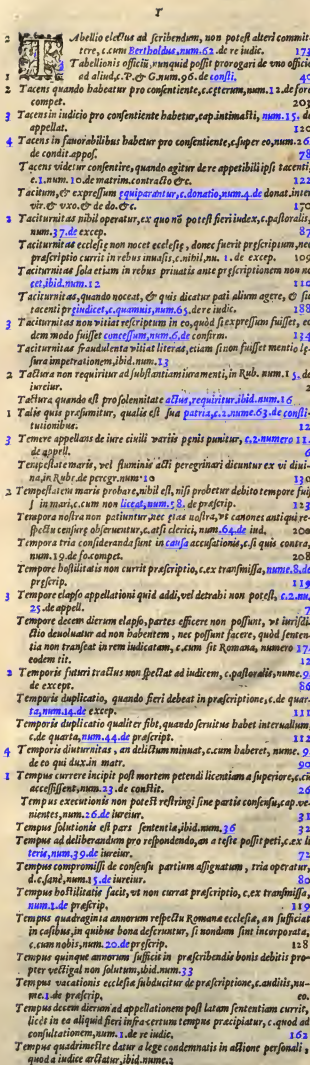 T
2 Tabellio electus ad scribendum, non potest alteri commit-
tere, c.cum Bertholdus, num.62.de re iudic. 173
3 Tabellionis officiũ, nunquid possit prorogari de vno officio
1 ad aliud, c.P. & G.num.96.de consti. 40
2 Tacens quando habeatur pro consentiente, c.ceterum, num.12.de foro
compet. 203
3 Tacens in iudicio pro consentiente habetur, cap.intimasti, num.15.de
appellat. 120
4 Tacens in fauorabilibus habetur pro consentiente, c.super eo, num.26.
de condit.appos. 78
Tacens videtur consentire, quando agitur de re appetibili ipsi tacenti,
c.1.num.10.de matrim.contracto &c. 122
Tacitum, & expressum equiparantur, c.donatio, num.4.de donat.inter
vir. & vxo. & de do. &c. 170
2 Taciturnitas nihil operatur, ex quo nõ potest fieri iudex, c.pastoralis,
num.37.de excep. 87
Taciturnitas ecclesię non nocet ecclesię, donec fuerit prescriptum, nec
prescriptio currit in rebus inuasis, c.nihil, nu. 1. de excep. 109
Taciturnitas sola etiam in rebus priuatis ante prescriptionem non no
cet, ibid.num.12 110
Taciturnitas, quando noceat, & quis dicatur pati alium agere, & sic
tacenti preiudicet, c.quamuis, num.65.de re iudic. 188
3 Taciturnitas non vitiat rescriptum in eo, quòd si expressum fuisset, eo
dem modo fuisset concessum, num.6.de confirm. 134
Taciturnitas fraudulenta vitiat literas, etiam si non fuisset mentio le-
sura impetrationem, ibid.num.13
2 Tactura non requiritur ad substantiam iuramenti, in Rub. num.15.de
iureiur. 2
Tactura quando est pro solennitate actus, requiritur.ibid.num.16
1 Talis quis presumitur, qualis est sua patria, c.2.nume.63.de consti-
tutionibus. 12
3 Temere appellans de iure ciuili varijs penis punitur, c.2.numero 11.
de appell. 6
Tempestate maris, vel fluminis acti peregrinari dicuntur ex vi diui-
na, in Rubr.de peregr.num.10 130
2 Tempestatem maris probare, nihil est, nisi probetur debito tempore fuis
s in mari, c.cum non liceat, num.58. de prescrip. 123
Tempora nostra non patiuntur, nec etas nostra, vt canones antiqui re-
spectu censure obseruentur, c.atsi clerici, num.64.de iud. 200
Tempora tria consideranda sunt in causa accusationis, c.si quis contra,
num.19.de fo.compet. 208
Tempore hostilitatis non currit prescriptio, c.ex transmissa, nume.8.de
prescrip. 119
3 Tempore elapso appellationi quid addi, vel detrahi non potest, c.2.nu.
25.de appell. 7
Tempore decem dierum elapso, partes efficere non possunt, vt iurisdi-
ctio deuoluatur ad non habentem, nec possunt facere, quòd senten-
tia non transeat in rem iudicatam, c.cum sit Romana, numero 17.
eodem tit. 12
2 Temporis futuri tractus non spectat ad iudicem, c.pastoralis, nume.9.
de except. 86
Temporis duplicatio, quando fieri debeat in prescriptione, c.de quar-
ta, num.14.de excep. 111
Temporis duplicatio qualiter fiet, quando seruitus habet interuallum,
c.de quarta, num.44.de prescript. 112
4 Temporis diuturnitas, an delictum minuat, c.cum haberet, nume. 9.
de eo qui dux.in matr. 90
1 Tempus currere incipit post mortem petendi licentiam a superiore, c.cũ
accessissent, num.23.de constit. 26
Tempus executionis non potest restringi sine partis consensu, cap.ve-
nientes, num.26.de iureiur. 31
Tempus solutionis est pars sententie, ibid.num.36 32
Tempus ad deliberandum pro respondendo, an a teste possit peti, c.ex li
teris, num.39.de iureiur. 72
Tempus compromissi de consensu partium assignatum, tria operatur,
d.c.sanè, num.15.de iureiur. 80
Tempus hostilitatis facit, vt non currat prescriptio, c.ex transmissa,
num.1.de prescrip. 119
Tempus quadraginta annorum respectu Romane ecclesie, an sufficiat
in casibus, in quibus bona deferuntur, si nondum sint incorporata,
c.cum nobis, num.20.de prescrip. 128
Tempus quinque annorum sufficit in prescribendis bonis debitis pro-
pter vectigal non solutum, ibid.num.33
Tempus vacationis ecclesie subducitur de prescriptione, c.auditis, nu-
me.1.de prescrip. eo.
Tempus decem dierum ad appellationem post latam sententiam currit,
licèt in ea aliquid fieri infra certum tempus precipiatur, c.quod ad
consultationem, num.1.de re iudic. 162
Tempus quadrimestre datur a lege condemnatis in actione personali,
quod a iudice arctatur, ibid.nume.2